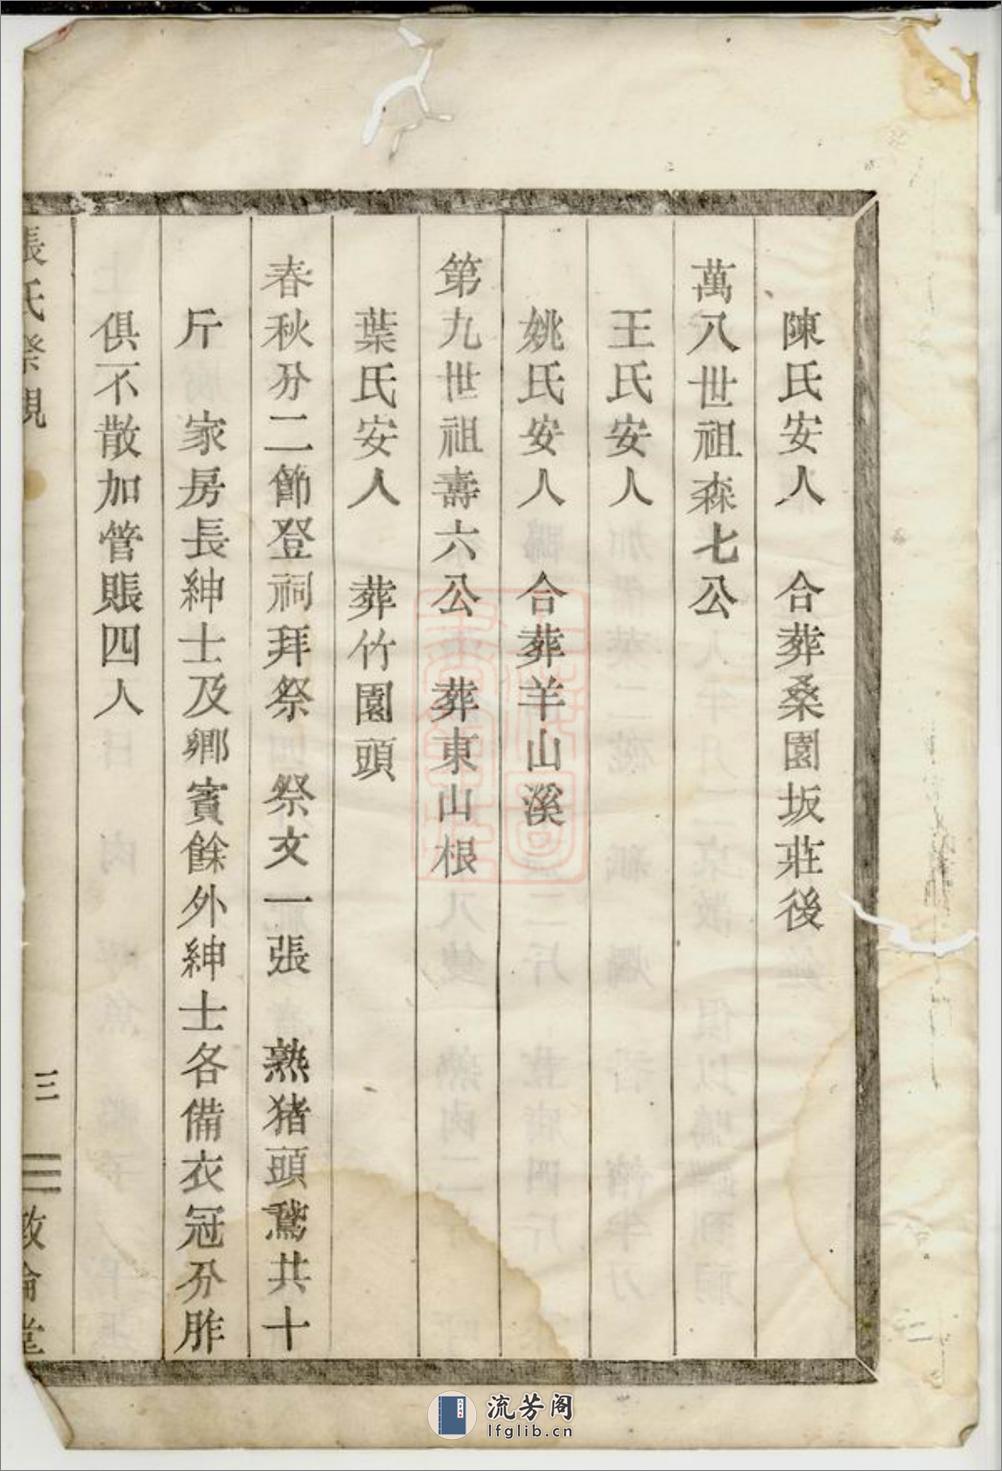 陳氏安人　合葬桑園坂莊後
萬八世祖森七公
王氏安人
姚氏安人　合葬羊山溪
第九世祖壽六公　葬東山根
葉氏安人　葬竹園頭
春秋分二節登祠拜祭　祭文一張　熟猪頭鵞共十
斤　家房長紳士及鄉賓餘外紳士各備衣冠分胙
俱不散加管賬四人
張氏祭規
三
敦倫堂
流芳阁
lfglib.cn